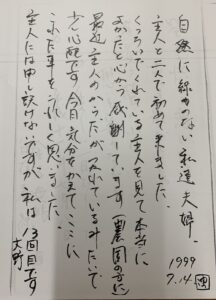 自然に縁のない私達夫婦
主人と二人で初めて来ました。
くつろいでくれている主人を見て本当に
よかったと心から感謝しています(農園の方に)
最近主人のからだがつかれているみたいで
少し心配です。今日気分をかえてここに
来た事をうれしく思いました。
主人には申し訳けないですが私は13回目です
大野
1999
7.14